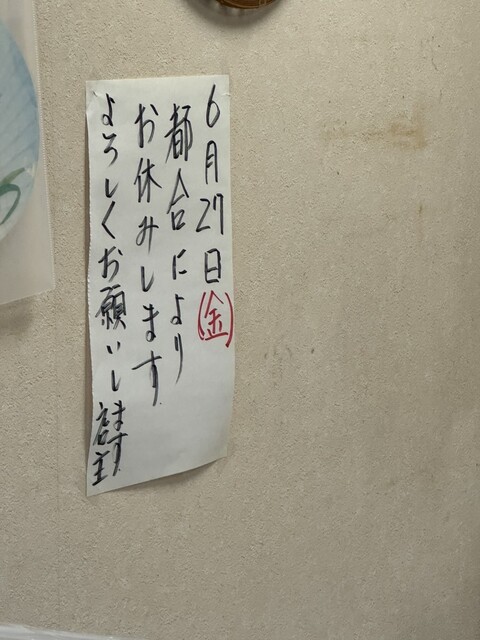 6月27日(金)
都合により
お休みします
よろしくお願いします 店主